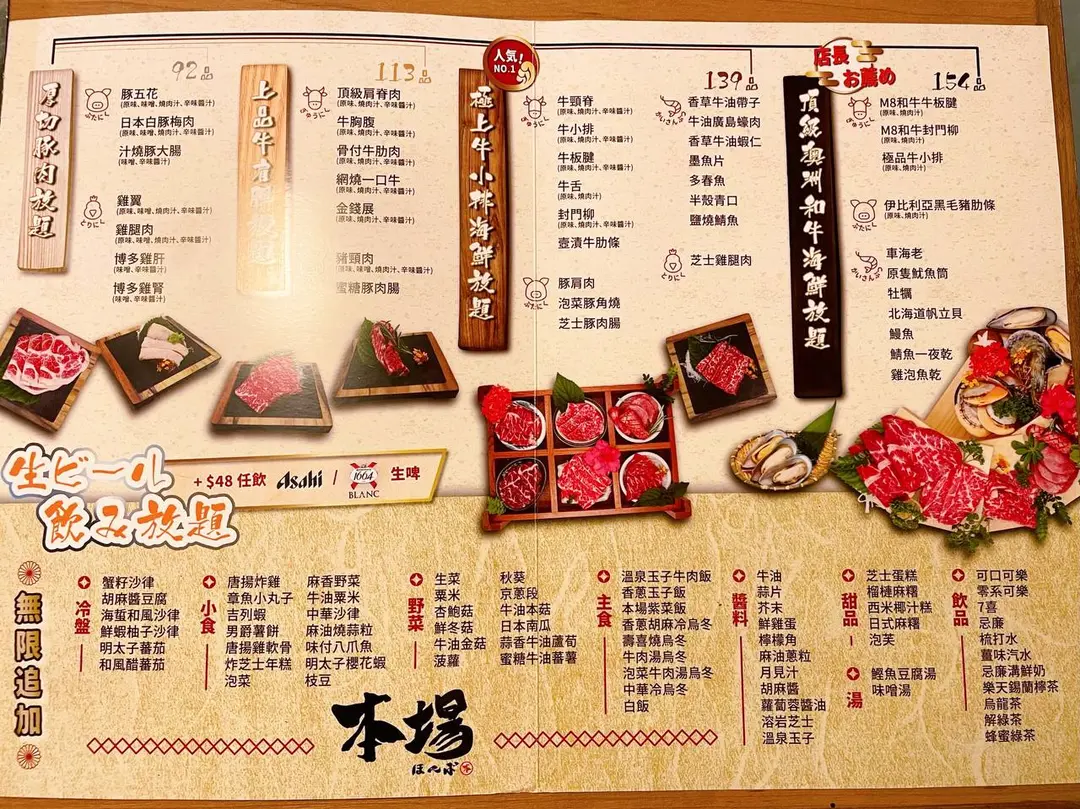 厚切豚肉放題
92品
ぶたにし
豚五花
(原味、味噌、燒肉汁、辛味醬汁)
日本白豚梅肉
(原味、味噌、燒肉汁、辛味醬汁)
汁燒豚大腸
(味噌、辛味醬汁)
とりにし
雞翼
(原味、味噌、燒肉汁、辛味醬汁)
雞腿肉
(原味、味噌、燒肉汁、辛味醬汁)
博多雞肝
(味噌、辛味醬汁)
博多雞腎
(味噌、辛味醬汁)
上品牛
放題
113品
ぎゅうにし
頂級肩脊肉
(原味、燒肉汁、辛味醬汁)
牛胸腹
(原味、燒肉汁、辛味醬汁)
骨付牛肋肉
(原味、燒肉汁、辛味醬汁)
網燒一口牛
(原味、燒肉汁、辛味醬汁)
金錢展
(原味、燒肉汁、辛味醬汁)
豬頸肉
(原味、味噌、燒肉汁、辛味醬汁)
蜜糖豚肉腸
人気!
NO.1
極上牛小排海鮮放題
139品
ぎゅうにし
牛頸脊
(原味、燒肉汁、辛味醬汁)
牛小排
(原味、燒肉汁、辛味醬汁)
牛板腱
(原味、燒肉汁、辛味醬汁)
牛舌
(原味、燒肉汁、辛味醬汁)
封門柳
(原味、燒肉汁、辛味醬汁)
壺漬牛肋條
ぶたにし
豚肩肉
泡菜豚角燒
芝士豚肉腸
かいさんぶつ
香草牛油帶子
牛油廣島蠔肉
香草牛油蝦仁
墨魚片
多春魚
半殼青口
鹽燒鯖魚
とりにし
芝士雞腿肉
店長
お薦め
頂級澳洲和牛海鮮放題
154品
ぎゅうにし
M8和牛牛板腱
(原味、燒肉汁)
M8和牛封門柳
(原味、燒肉汁)
極品牛小排
(原味、燒肉汁)
ぶたにし
伊比利亞黑毛豬肋條
(原味、燒肉汁、辛味醬汁)
かいさんぶつ
車海老
原隻魷魚筒
牡犡
北海道帆立貝
鰻魚
鯖魚一夜乾
雞泡魚乾
生ビール
飲み放題
+ $48 任飲 Asahi / 1664 BLANC 生啤
無限追加
冷盤
蟹籽沙律
胡麻醬豆腐
海蜇和風沙律
鮮蝦柚子沙律
明太子蕃茄
和風醋蕃茄
小食
唐揚炸雞
章魚小丸子
吉列蝦
男爵薯餅
唐揚雞軟骨
炸芝士年糕
泡菜
麻香野菜
牛油粟米
中華沙律
麻油燒蒜粒
味付八爪魚
明太子櫻花蝦
枝豆
野菜
生菜
粟米
杏鮑菇
鮮冬菇
牛油金菇
菠蘿
秋葵
京蔥段
牛油本菇
日本南瓜
蒜香牛油蘆荀
蜜糖牛油蕃薯
主食
溫泉玉子牛肉飯
香蔥玉子飯
本場紫菜飯
香蔥胡麻冷烏冬
壽喜燒烏冬
牛肉湯烏冬
泡菜牛肉湯烏冬
中華冷烏冬
白飯
醬料
牛油
蒜片
芥末
鮮雞蛋
檸檬角
麻油蔥粒
月見汁
胡麻醬
蘿蔔蓉醬油
溶岩芝士
溫泉玉子
甜品
芝士蛋糕
榴槤麻糬
西米椰汁糕
日式麻糬
泡芙
湯
鰹魚豆腐湯
味噌湯
飲品
可口可樂
零系可樂
7喜
忌廉
梳打水
薑味汽水
忌廉溝鮮奶
樂天錫蘭檸茶
烏龍茶
解綠茶
蜂蜜綠茶
本場
ほんば